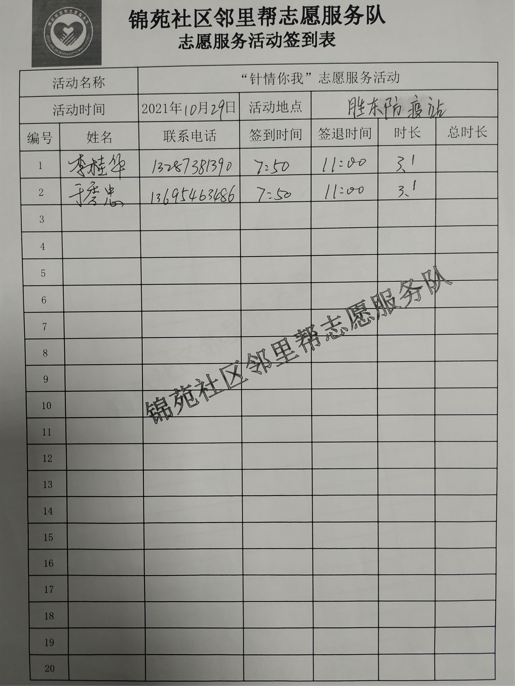 锦苑社区邻里帮志愿服务队
志愿服务活动签到表
活动名称 “针情你我”志愿服务活动
活动时间 2021年10月29日 活动地点 胜东防疫站
编号 姓名 联系电话 签到时间 签退时间 时长 总时长
1 李桂华 13287381390 7:50 11:00 3.1
2 于秀忠 13695463486 7:50 11:00 3.1
3
4
5
6
7
8
9
10
11
12
13
14
15
16
17
18
19
20
锦苑社区邻里帮志愿服务队